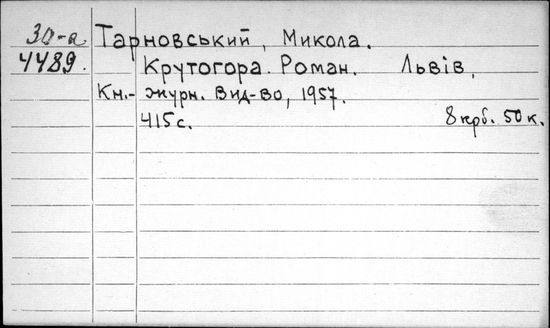 30-а Тарновський, Микола.
4489. Крутогора. Роман. Львів,
Кн.- журн. Вид-во, 1957.
415 с. 8 крб. 50 к.